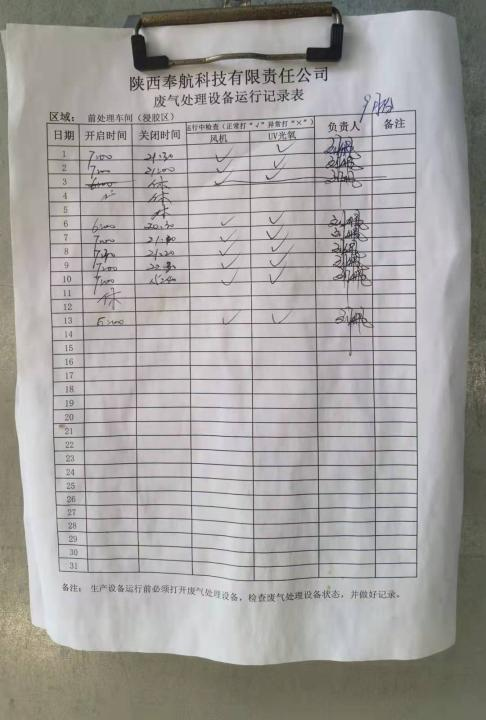 陕西奉航科技有限责任公司
废气处理设备运行记录表
9月份
区域： 前处理车间（浸胶区）
日期 开启时间 关闭时间 运行中检查（正常打“√”异常打“×”） 负责人 备注
风机 UV光氧
1 7:00 21:30 √ √
2 7:00 21:00 √ √
3 6:00 休 √ √
4 休
5 休
6 6:00 20:30 √ √
7 7:00 √ √
8 21:20 √ √
9 7:00 √ √
10 7:00 √ √
11 休
12
13 6:00 √ √
14
15
16
17
18
19
20
21
22
23
24
25
26
27
28
29
30
31
备注： 生产设备运行前必须打开废气处理设备，检查废气处理设备状态，并做好记录。